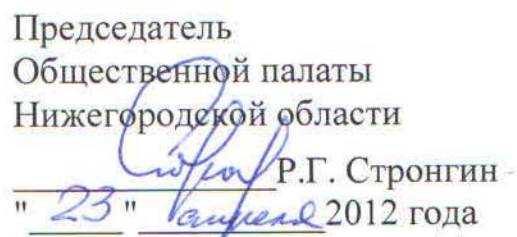 Председатель
Общественной палаты
Нижегородской области
Р.Г. Стронгин
" 23 " апреля 2012 года